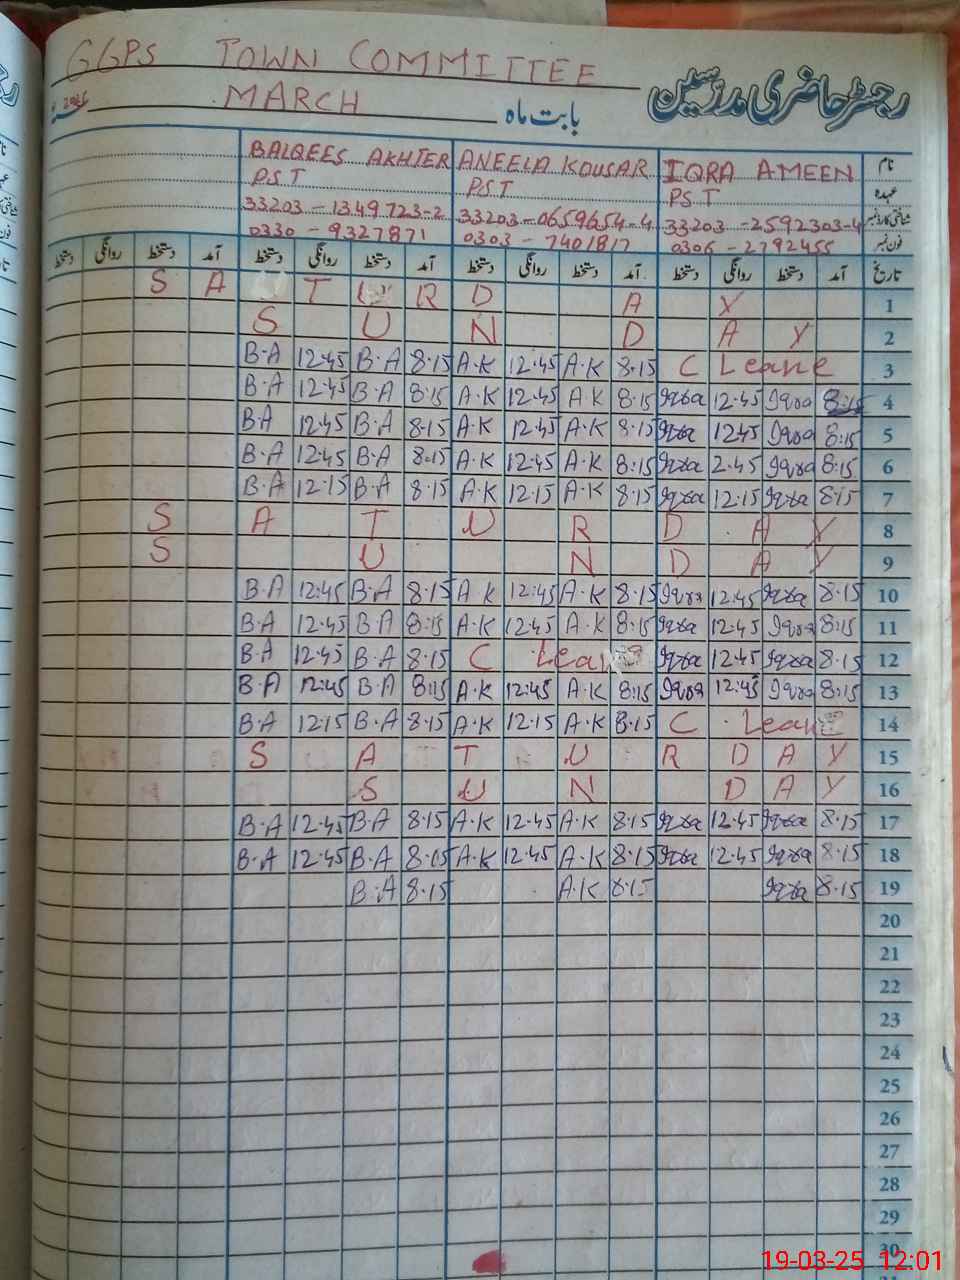 GGPS TOWN COMMITTEE
رجسٹر حاضری مدرسین
MARCH بابت ماہ
BALQEES AKHTER ANEELA KOUSAR IQRA AMEEN نام
PST PST PST عہدہ
33203-1349723-2 33203-0659654-4 33203-2592303-4 شناختی کارڈ نمبر
0330-9327871 0303-7401817 0306-2792455 فون نمبر
دستخط روانگی دستخط آمد دستخط روانگی دستخط آمد دستخط روانگی دستخط آمد دستخط روانگی دستخط آمد تاریخ
S A T U R D A Y 1
S U N D A Y 2
B.A 12.45 B.A 8.15 A.K 12.45 A.K 8.15 C Leave 3
B.A 12.45 B.A 8.15 A.K 12.45 A.K 8.15 Iqra 12.45 Iqra 8:15 4
B.A 12.45 B.A 8.15 A.K 12.45 A.K 8.15 Iqra 12.45 Iqra 8:15 5
B.A 12.45 B.A 8.15 A.K 12.45 A.K 8:15 Iqra 2.45 Iqra 8:15 6
B.A 12.15 B.A 8.15 A.K 12.15 A.K 8:15 Iqra 12.15 Iqra 8:15 7
S A T U R D A Y 8
S U N D A Y 9
B.A 12:45 B.A 8.15 A.K 12:45 A.K 8.15 Iqra 12.45 Iqra 8.15 10
B.A 12.45 B.A 8:15 A.K 12.45 A.K 8:15 Iqra 12.45 Iqra 8:15 11
B.A 12.45 B.A 8.15 C Leave Iqra 12.45 Iqra 8.15 12
B.A 12:45 B.A 8:15 A.K 12:45 A.K 8:15 Iqra 12:45 Iqra 8:15 13
B.A 12.15 B.A 8.15 A.K 12.15 A.K 8.15 C Leave 14
S A T U R D A Y 15
S U N D A Y 16
B.A 12.45 B.A 8.15 A.K 12.45 A.K 8.15 Iqra 12.45 Iqra 8.15 17
B.A 12.45 B.A 8.15 A.K 12.45 A.K 8.15 Iqra 12.45 Iqra 8.15 18
B.A 8.15 A.K 8.15 Iqra 8.15 19
20
21
22
23
24
25
26
27
28
29
30
19-03-25 12:01